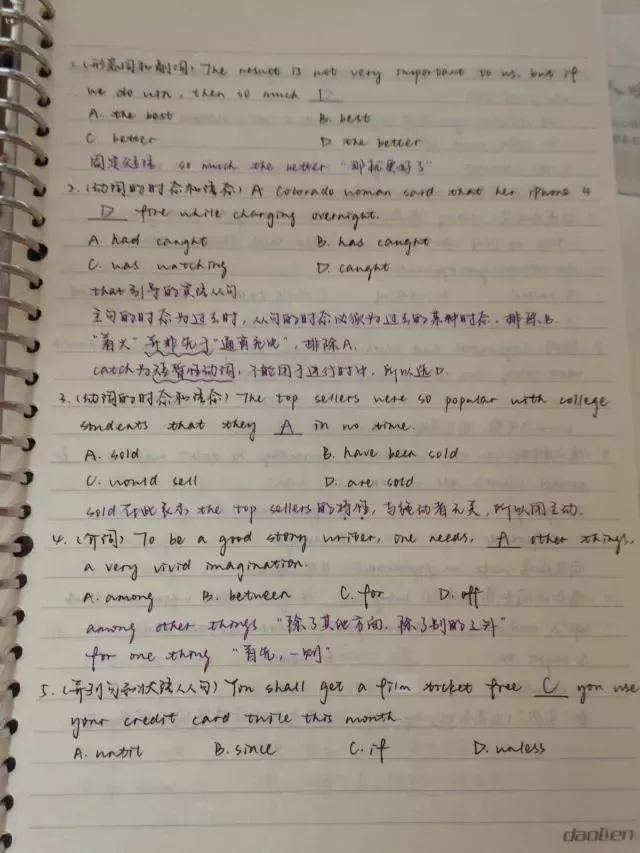 1. (形容词和副词) The result is not very important to us, but if
we do win, then so much D
A. the best B. best
C. better D. the better
固定短语 so much the better “那就更好了”
2. (动词的时态和语态) A Colorado woman said that her iphone 4
D fire while charging overnight.
A. had caught B. has caught
C. was catching D. caught
that引导的宾语从句.
主句的时态为过去时, 从句的时态必须为过去的某种时态. 排除B.
“着火” 并非先于“通宵充电”, 排除A.
catch为短暂性动词, 不能用于进行时中, 所以选D.
3. (动词的时态和语态) The top sellers were so popular with college
students that they A in no time.
A. sold B. have been sold
C. would sell D. are sold
sold在此表示 the top sellers的特性, 与施动者无关, 所以用主动.
4. (介词) To be a good story writer, one needs, A other things,
a very vivid imagination.
A. among B. between C. for D. off
among other things “除了其他方面, 除了别的之外”
for one thing “首先, 一则”
5. (并列句和状语从句) You shall get a film ticket free C you use
your credit card twice this month.
A. until B. since C. if D. unless